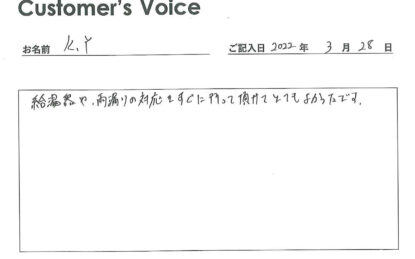 Customer's Voice
お名前 K.Y ご記入日 2022 年 3 月 28 日
給湯器や、雨漏りの対応をすぐに行って頂けてとてもよかったです。